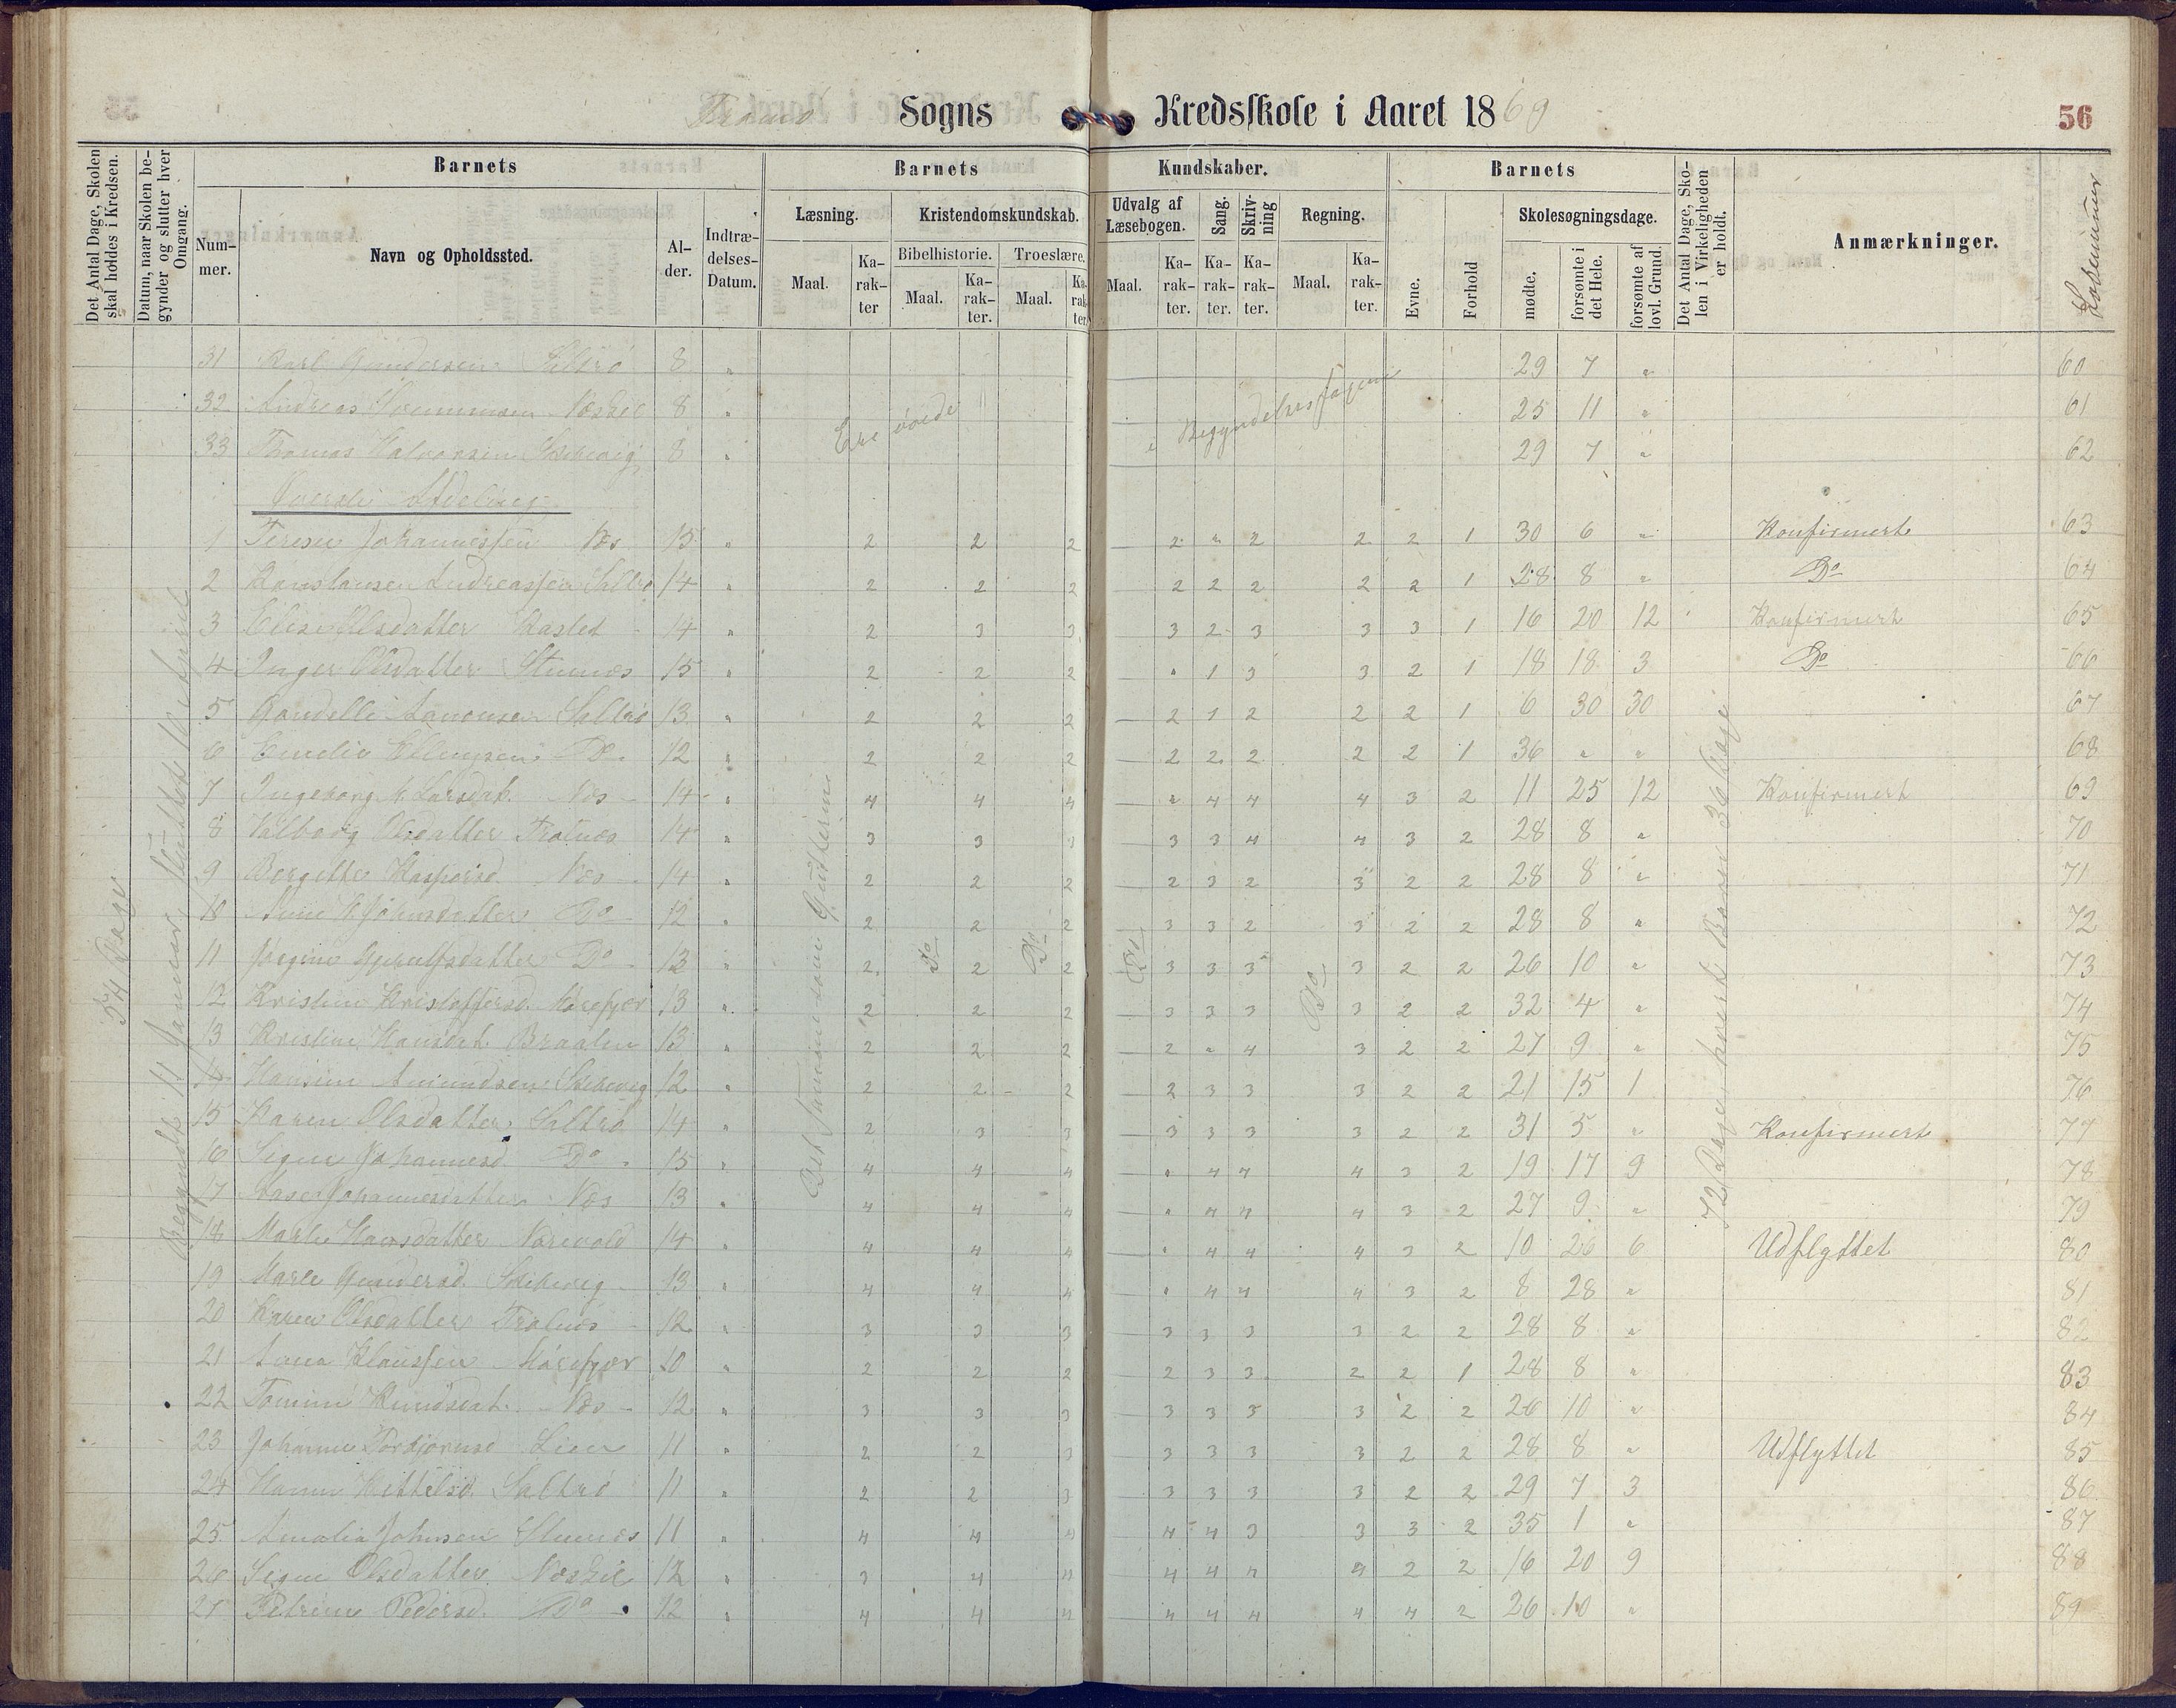 Sogns Kredsskole i Aaret 1869
56
Det Antal Dage, Skolen skal holdes i Kredsen.
Datum, naar Skolen begynder og slutter hver Omgang.
Barnets
Nummer.
Navn og Opholdssted.
Alder.
Indtrædelses-Datum.
Barnets Kundskaber.
Læsning.
Maal.
Karakter
Kristendomskundskab.
Bibelhistorie.
Maal.
Karakter.
Troeslære.
Maal.
Karakter.
Udvalg af Læsebogen.
Maal.
Karakter.
Sang.
Karakter.
Skrivning
Karakter.
Regning.
Maal.
Karakter.
Barnets
Evne.
Forhold
Skolesøgningsdage.
mødte.
forsømte i det Hele.
forsømte af lovl. Grund.
Det Antal Dage, Skolen i Virkeligheden er holdt.
Anmærkninger.
Løbenummer
31 Karl Gundersen Saltrö 8 " 29 7 " 60
32 Andreas Næskil 8 " 25 11 " 61
33 Thomas Halvorsen 8 " 29 7 " 62
Ere övede i Begyndelsesfagene
Øverste Afdeling
1 Terese Johannessen Næs 15 " 2 2 2 2 " 2 2 2 1 30 6 " Konfirmert 63
2 Andreassen Saltrö 14 " 2 2 2 2 2 2 2 2 1 28 8 " Do 64
3 Elise Olsdatter Kaslet 14 " 2 3 3 3 2 3 3 3 1 16 20 12 Konfirmert 65
4 Inger Olsdatter Stumnæs 15 " 2 2 2 " 1 3 3 2 1 18 18 3 Do 66
5 Aanonsen Saltrö 13 " 2 2 2 2 1 2 2 2 1 6 30 30 67
6 Emelie Ellingsen Do 12 " 2 2 2 2 2 2 2 2 1 36 " " 68
7 Ingeborg K. Larsdat. Næs 14 " 4 4 4 " 4 4 4 3 2 11 25 12 Konfirmert 69
8 Valborg Olsdatter Tralnæs 14 " 3 3 3 3 3 4 4 3 2 28 8 " 70
9 Bergitte Kaspersd. Næs 14 " 2 2 2 2 3 2 3 2 2 28 8 " 71
10 Anne K. Johnsdatter Do 12 " 2 2 2 3 3 2 3 2 2 28 8 " 72
11 Jörgine Gjerulfsdatter Do 13 " 2 2 2 3 3 3 3 2 2 26 10 " 73
12 Kristine Kristoffersd. Mörefjær 13 " 2 2 2 3 3 3 3 2 2 32 4 " 74
13 Kristine Hansdat. Braaten 13 " 2 2 2 2 " 4 3 2 2 27 9 " 75
14 Hansine Amundsen 12 " 2 2 2 2 3 3 3 2 2 21 15 1 76
15 Karen Olsdatter Saltrö 14 " 2 3 3 3 3 3 3 2 2 31 5 " Konfirmert 77
16 Signe Johannesd. Do 15 " 4 4 4 " 4 4 4 3 2 19 17 9 78
17 Aase Johannesdatter Næs 13 " 4 4 4 " 4 4 4 3 2 27 9 " 79
18 Marthe Hansdatter 14 " 4 4 4 " 4 4 4 3 2 10 26 6 Udflyttet 80
19 Maren Gundersd. 13 " 4 4 4 " 4 4 4 3 2 8 28 " 81
20 Karen Olsdatter Tralnæs 12 " 3 3 3 3 3 3 3 2 2 28 8 " 82
21 Anna Klaussen Mörefjær 10 " 2 2 2 2 3 3 2 2 1 28 8 " 83
22 Tomine Knudsdat. Næs 12 " 3 3 3 3 3 3 3 2 2 26 10 " 84
23 Johanne Torbjörnsd. Lien 11 " 2 2 3 3 3 3 3 2 2 28 8 " Udflyttet 85
24 Hanne Kittelsd. Saltrö 11 " 2 2 3 3 3 3 3 2 2 29 7 3 86
25 Amalia Johnsen Stumnæs 11 " 4 4 4 4 4 3 3 3 2 35 1 " 87
26 Signe Olsdatter Næskil 12 " 3 4 4 4 4 4 4 2 2 16 20 9 88
27 Petrine Pedersd. Do 12 " 4 4 4 4 4 4 4 4 2 26 10 " 89
Dage
Begyndte 11 Januar, sluttet 10 April
Det samme som Gutterne
Do
Do
Do
Do
72 Dage, hvert Barn 36 Dage